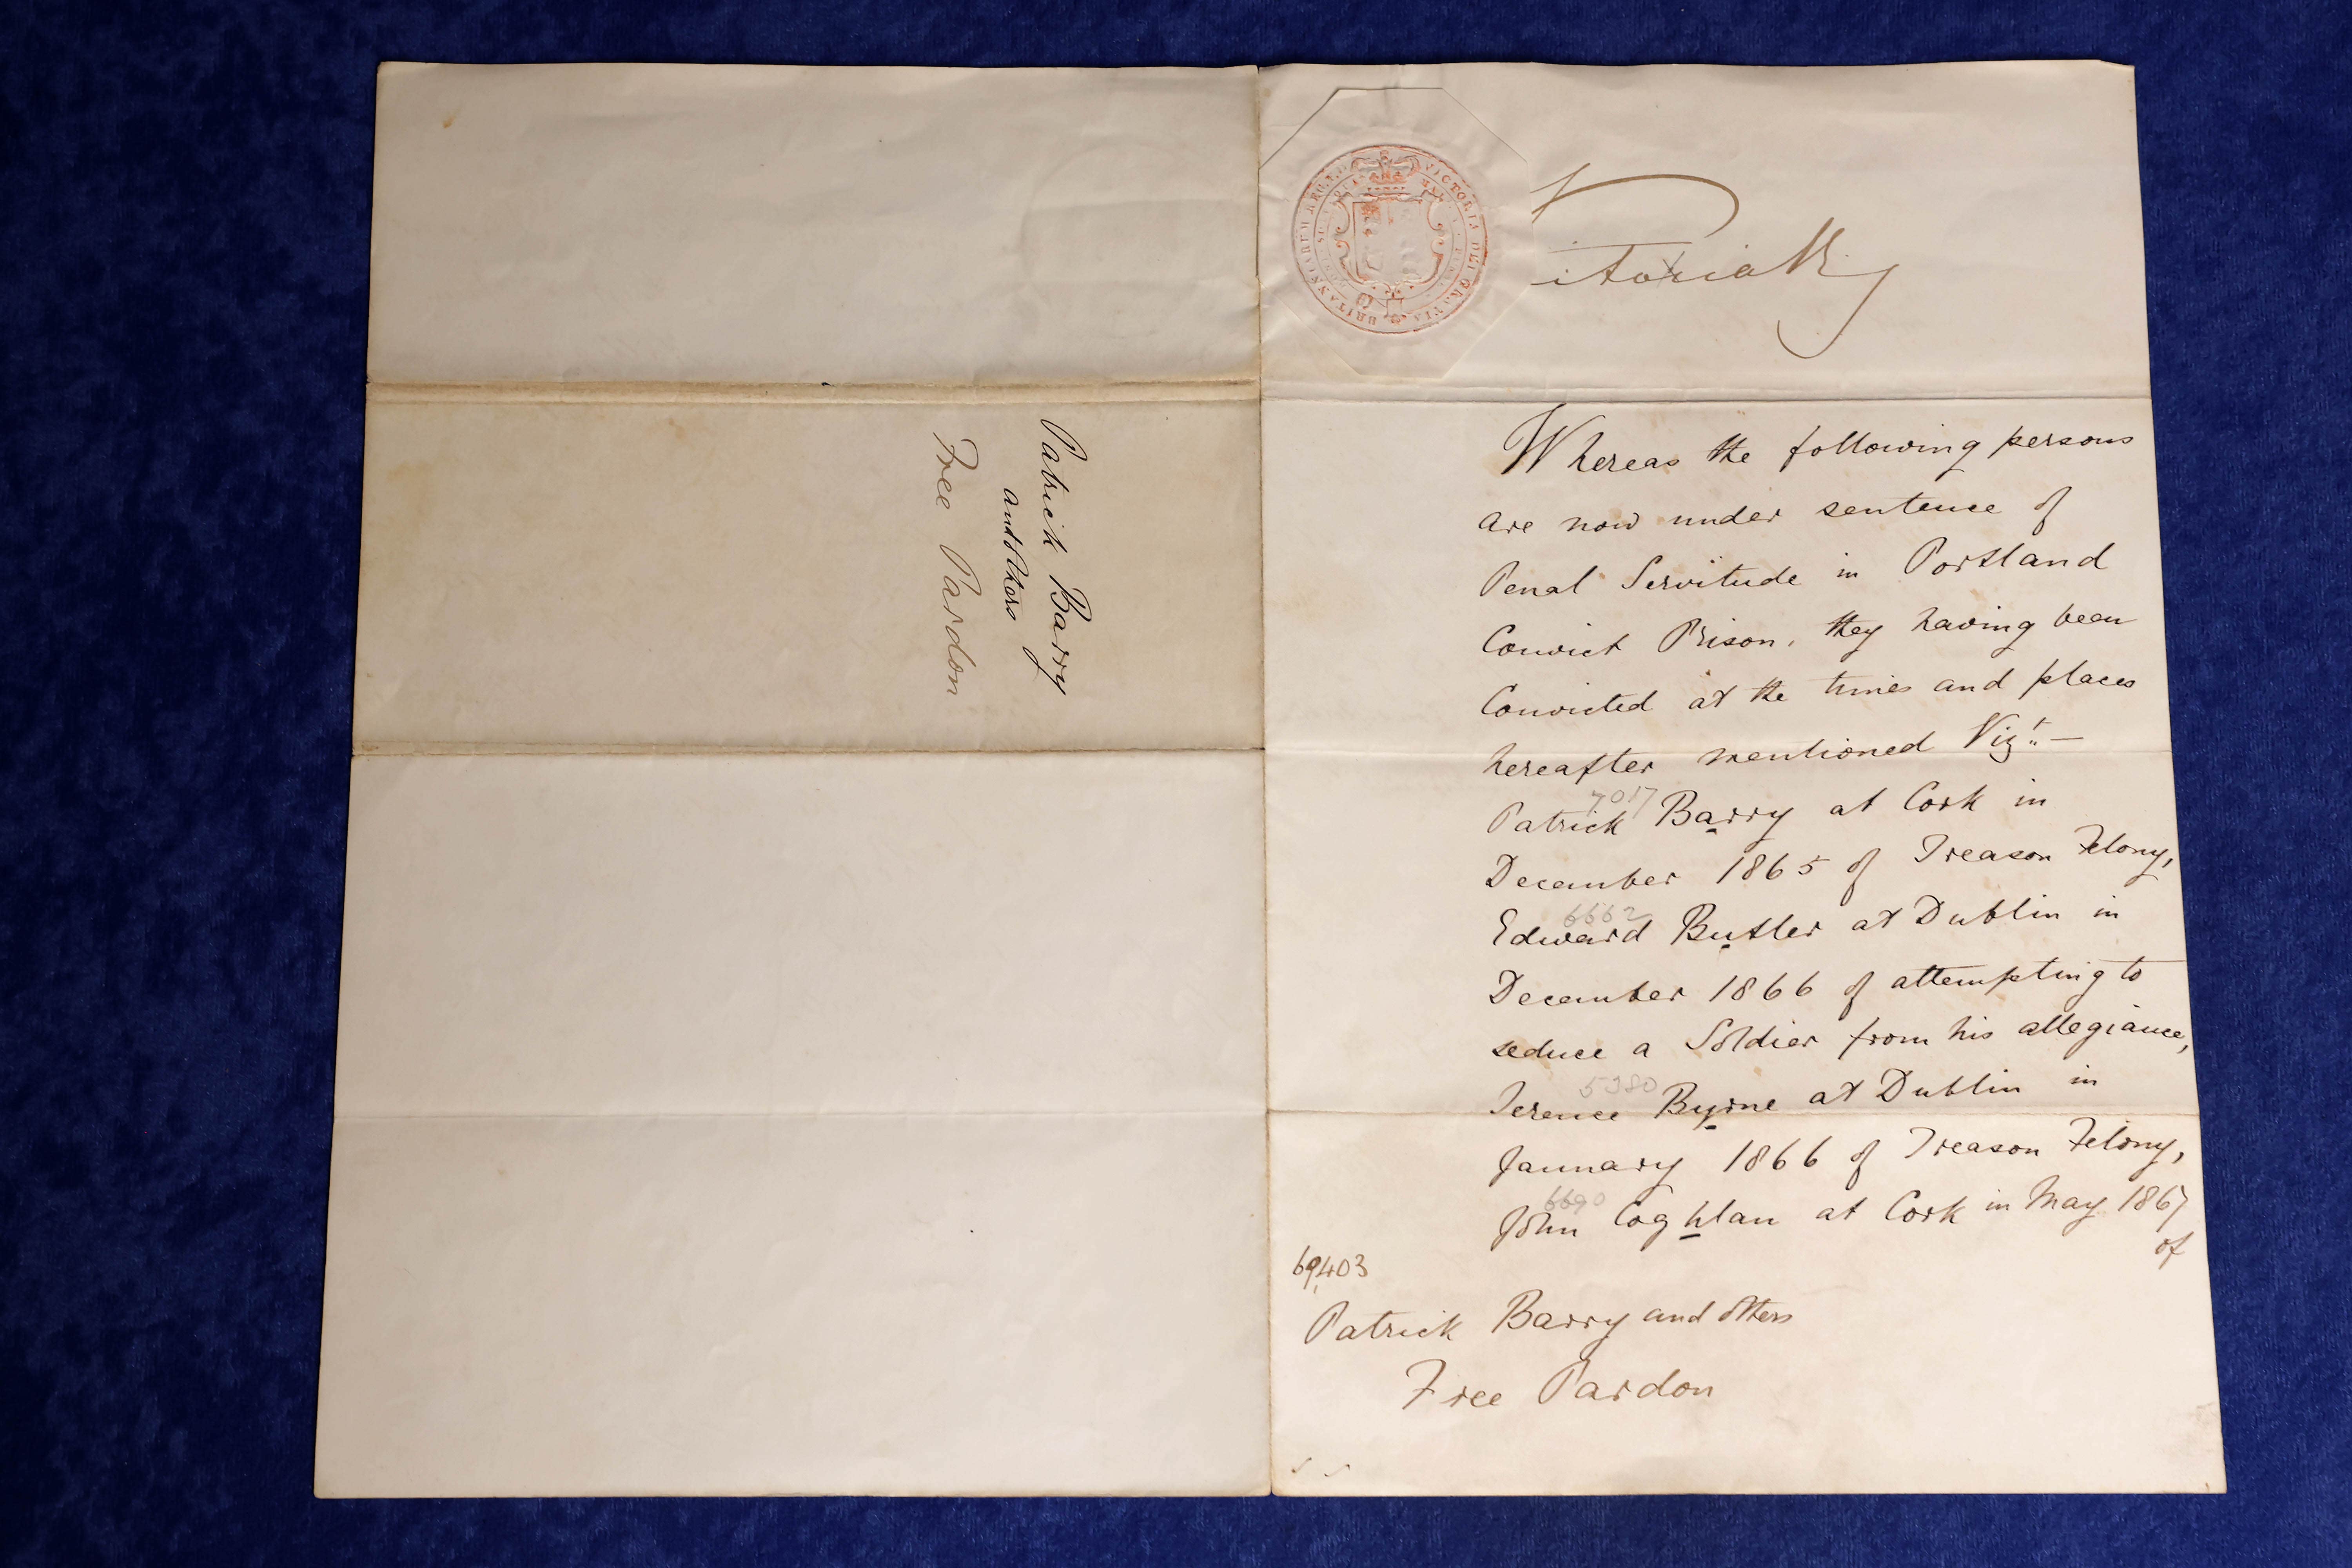 Patrick Barry
and Others
Free Pardon
VICTORIA DEI GRATIA BRITANNIARUM REG. F.D.
Victoria R
Whereas the following persons
are now under sentence of
Penal Servitude in Portland
Convict Prison, they having been
Convicted at the times and places
hereafter mentioned Vizt:—
7017
Patrick Barry at Cork in
December 1865 of Treason Felony,
6662
Edward Butler at Dublin in
December 1866 of attempting to
seduce a Soldier from his allegiance,
5980
Terence Byrne at Dublin in
January 1866 of Treason Felony,
6690
John Coghlan at Cork in May 1867
of
69,403
Patrick Barry and others
Free Pardon